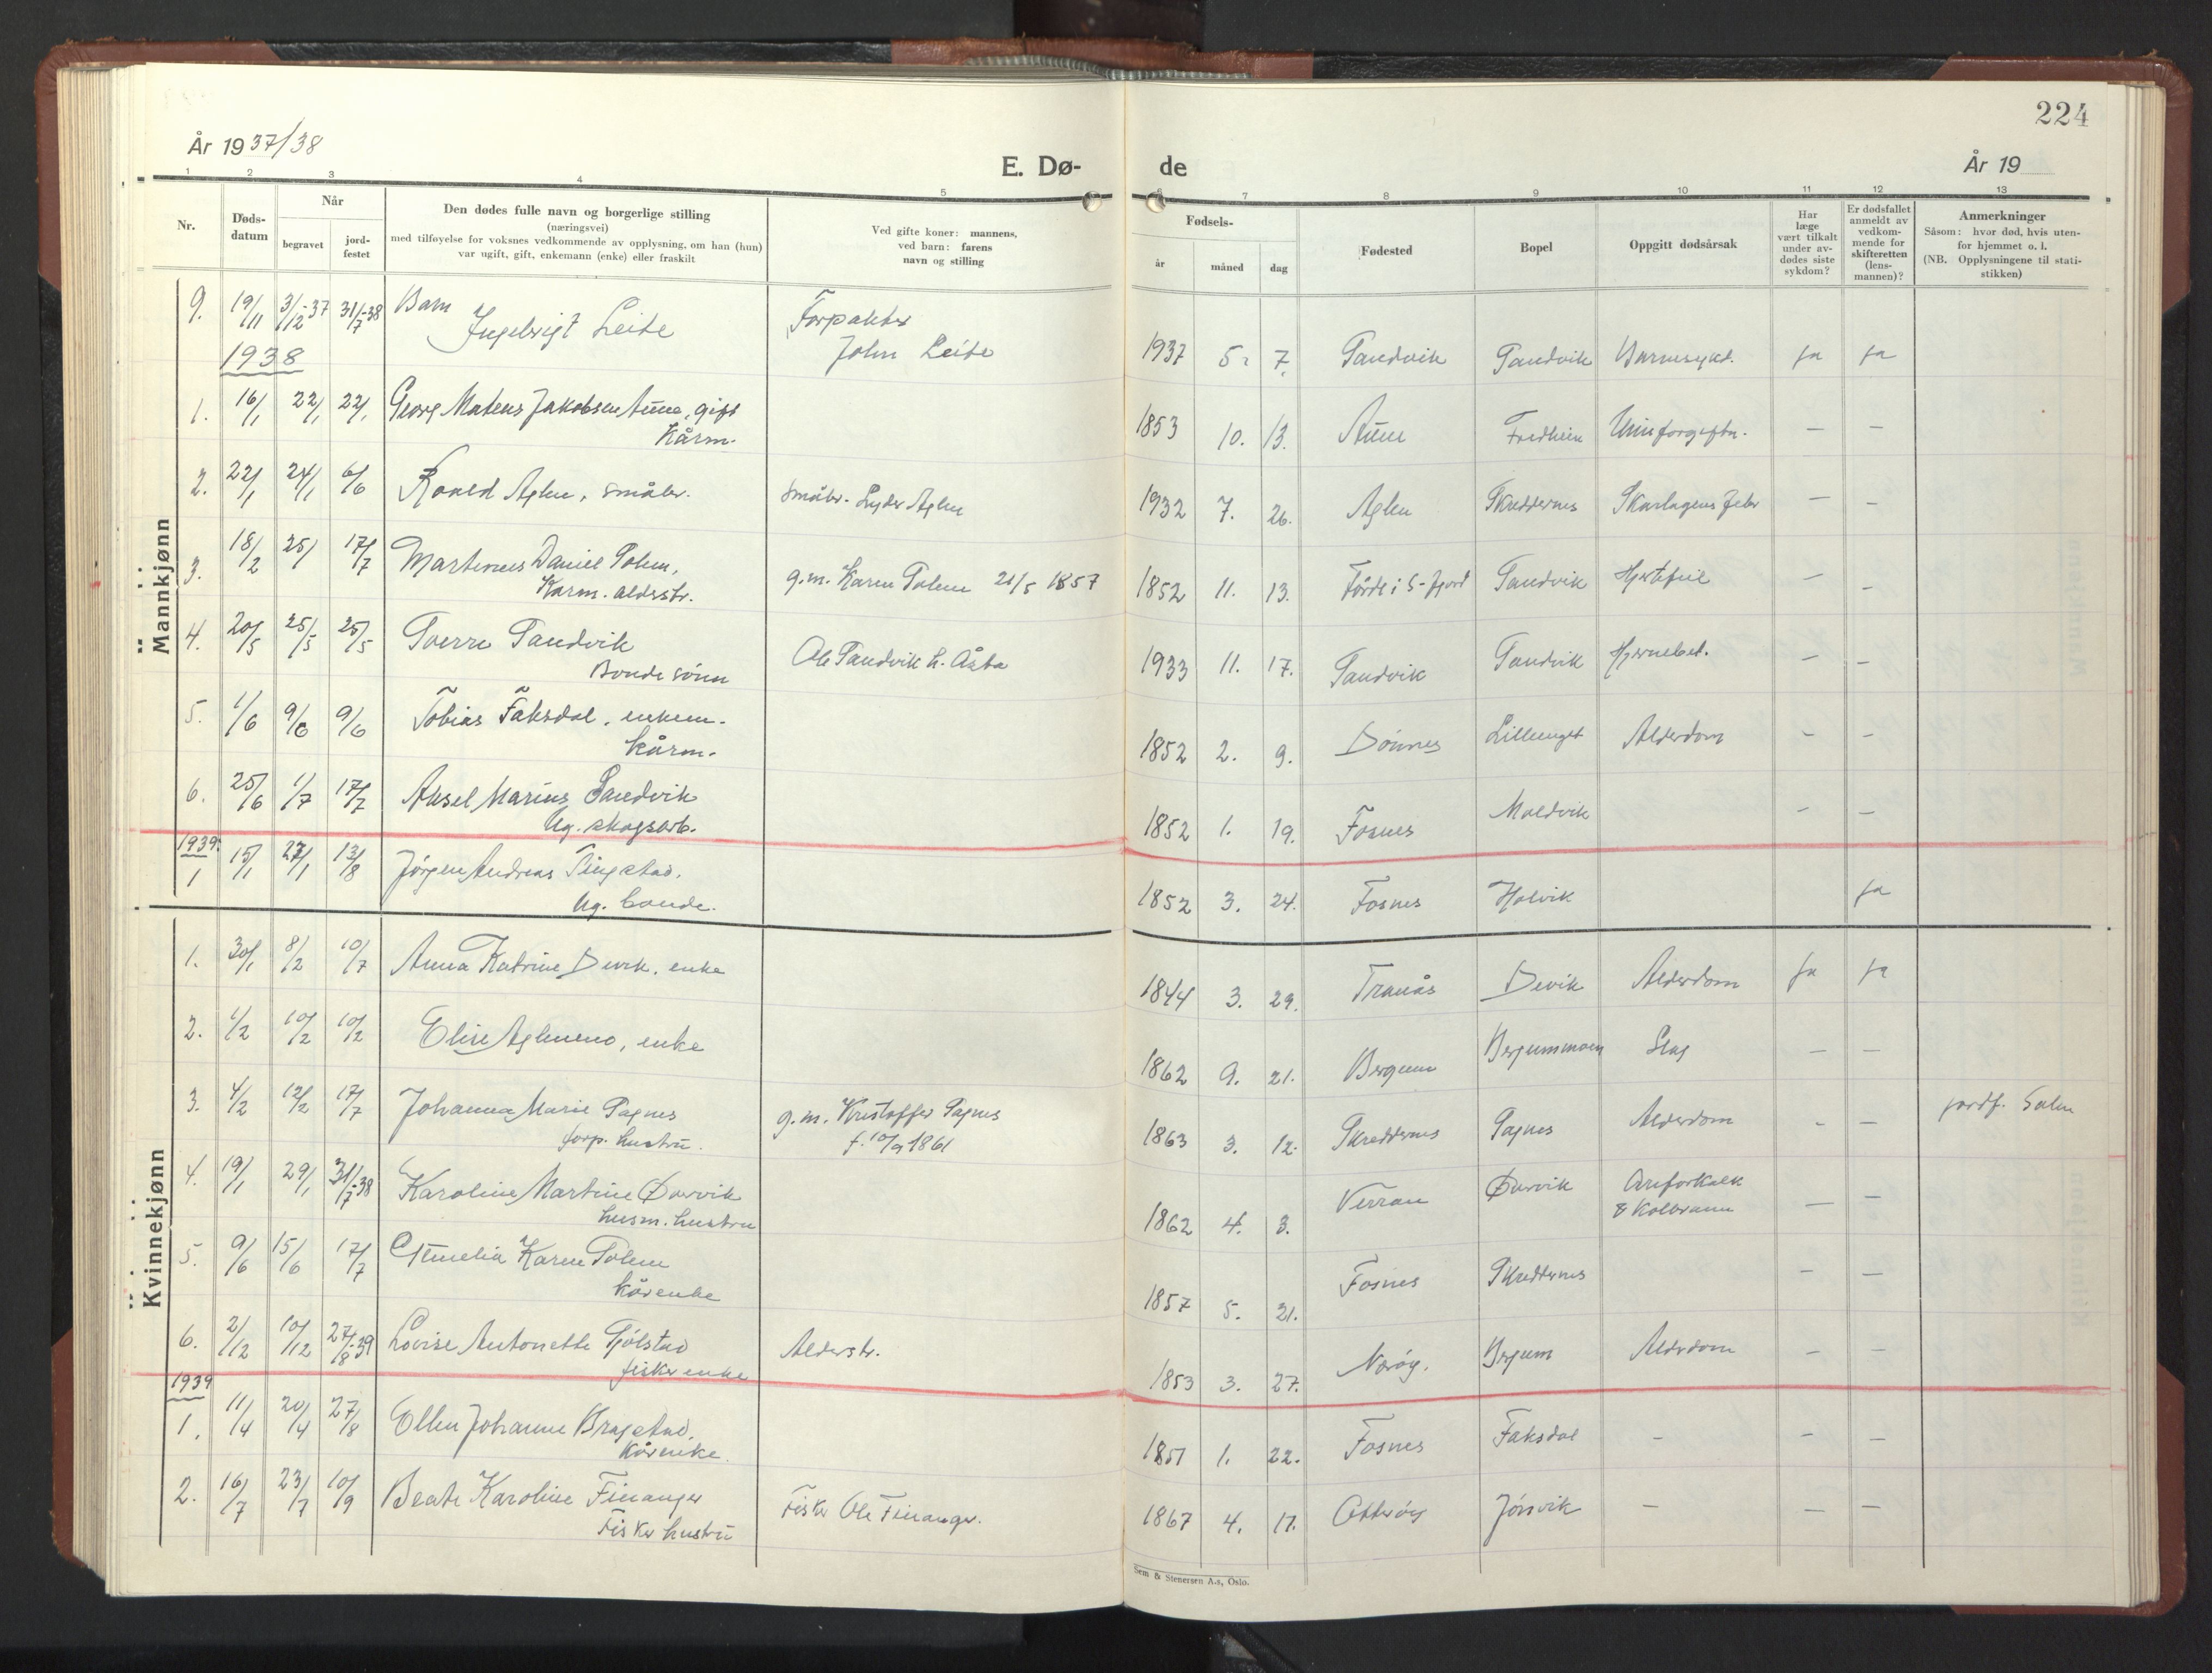 224
År 1937/38
E. Dø-
de
År 19
1 2 3 4 5
6 7 8 9 10 11 12 13
Nr.
Døds-
datum
Når
begravet
jord-
festet
Den dødes fulle navn og borgerlige stilling
(næringsvei)
med tilføyelse for voksnes vedkommende av opplysning, om han (hun)
var ugift, gift, enkemann (enke) eller fraskilt
Ved gifte koner: mannens,
ved barn: farens
navn og stilling
Fødsels-
år
måned
dag
Fødested
Bopel
Oppgitt dødsårsak
Har
læge
vært tilkalt
under av-
dødes siste
sykdom?
Er dødsfallet
anmeldt av
vedkom-
mende for
skifteretten
(lens-
mannen)?
Anmerkninger
Såsom: hvor død, hvis uten-
for hjemmet o. l.
(NB. Opplysningene til stati-
stikken)
Mannkjønn
9. 19/11 3/12-37 31/7-38 Barn
Ingebrigt Leite
Forpakter
John Leite
1937 5. 7. Sandvik Sandvik Barnesykd. ja ja
1938
1. 16/1 22/1 22/1 Georg Mateus Jakobsen Aune, gift
Kårm.
1853 10. 13. Aune Fredheim — —
2. 22/1 24/1 6/6 Roald Aglen, småbr.
småbr. Lyder Aglen
1932 7. 26. Aglen Skreddernes Skarlagensfeber — —
3. 18/2 25/ 17/7 Martinus Daniel Solem,
Kårm. alderstr.
g.m. Karen Solem 21/5 1857
1852 11. 13. Førde i S-fjord Sandvik Hjertefeil — —
4. 20/5 25/5 25/5 Sverre Sandvik
Bondesønn
Ole Sandvik h. Åsta
1933 11. 17. Sandvik Sandvik Hjernebet. — —
5. 1/6 9/6 9/6 Tobias Faksdal, enkem.
kårm.
1852 2. 9. Dønnes Lillenget Alderdom — —
6. 25/6 1/7 17/7 Aksel Marius Sandvik
Ug. skogsarb.
1852 1. 19. Fosnes Moldvik — —
1939.
1 15/1 27/1 13/8 Jørgen Andreas Tingstad,
Ug. bonde.
1852 3. 24. Fosnes Holvik ja
Kvinnekjønn
1. 30/1 8/2 10/7 Anna Katrine Devik, enke
1844 3. 29. Tranås Devik Alderdom ja ja
2. 1/2 10/2 10/2 Elise Aglenmo, enke
1862 9. 21. Bergum Bergummoen Slag — —
3. 4/2 12/2 17/7 Johanna Marie Sagnes
forp. hustru.
g.m. Kristoffer Sagnes
f. 10/9 1861
1863 3. 12. Skreddernes Sagnes Alderdom — — jordf. Salen
4. 19/1 29/1 31/7-38 Karoline Martine Durvik
husm. hustru
1862 4. 3. Verran Durvik Åreforkalk
& Koldbrann — —
5. 9/6 15/6 17/7 Karen Solem
kårenke
1857 5. 21. Fosnes Skreddernes — —
6. 2/12 10/12 27/8-39 Lovise Antonette Gjølstad
fisker enke
Alderstr.
1853 3. 27. Nærøy. Bergum Alderdom — —
1939
1. 11/4 20/4 27/8 Ellen Johanne Bragstad,
Kårenke.
1851 1. 22. Fosnes Faksdal — — —
2. 16/7 23/7 10/9 Beate Karoline Finanger
Fisker hustru
Fisker Ole Finanger.
1867 4. 17. Otterøy Jørsvik — — —
Sem & Stenersen A.s, Oslo.